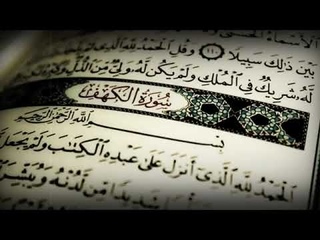 الأسماء الحسنى
بين ذلك سبيلا ١١٠ وقل الحمد لله الذي
له شريك في الملك ولم يكن له ولي من الذل
سورة الكهف
بسم الله الرحمن الرحيم
الحمد لله الذي أنزل على عبده الكتاب ولم يجعل
شديدا من لدنه ويبشر